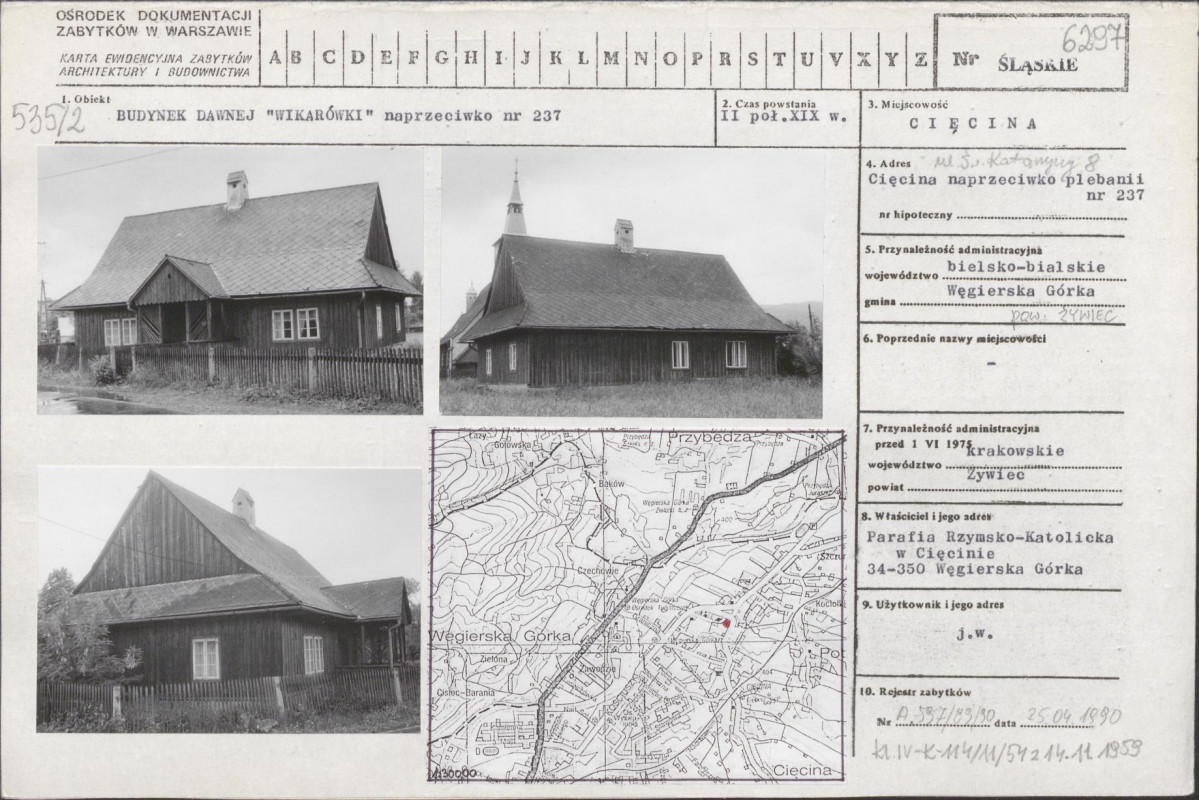 OŚRODEK DOKUMENTACJI
ZABYTKÓW W WARSZAWIE
KARTA EWIDENCYJNA ZABYTKÓW
ARCHITEKTURY I BUDOWNICTWA
A B C D E F G H I J K L M N O P R S T U V X Y Z
Nr ŚLĄSKIE
6297
535/2
1. Obiekt
BUDYNEK DAWNEJ "WIKARÓWKI" naprzeciwko nr 237
2. Czas powstania
II poł.XIX w.
3. Miejscowość
CIĘCINA
4. Adres ul Św. Katarzyny 8
Cięcina naprzeciwko plebanii
nr 237
nr hipoteczny
5. Przynależność administracyjna
województwo bielsko-bialskie
gmina Węgierska Górka
pow. ŻYWIEC
6. Poprzednie nazwy miejscowości
-
7. Przynależność administracyjna
przed 1 VI 1975
województwo krakowskie
powiat Żywiec
8. Właściciel i jego adres
Parafia Rzymsko-Katolicka
w Cięcinie
34-350 Węgierska Górka
9. Użytkownik i jego adres
j.w.
10. Rejestr zabytków
Nr A 597/89/90 data 25.04.1990
kl.IV-K-114/11/54 z 14.11.1959
Łazy
Gołowska
Przybędza
Baków
Czechowie
Węgierska Górka
Zielona
Zawodzie
Cisiec-Barania
Cięcina